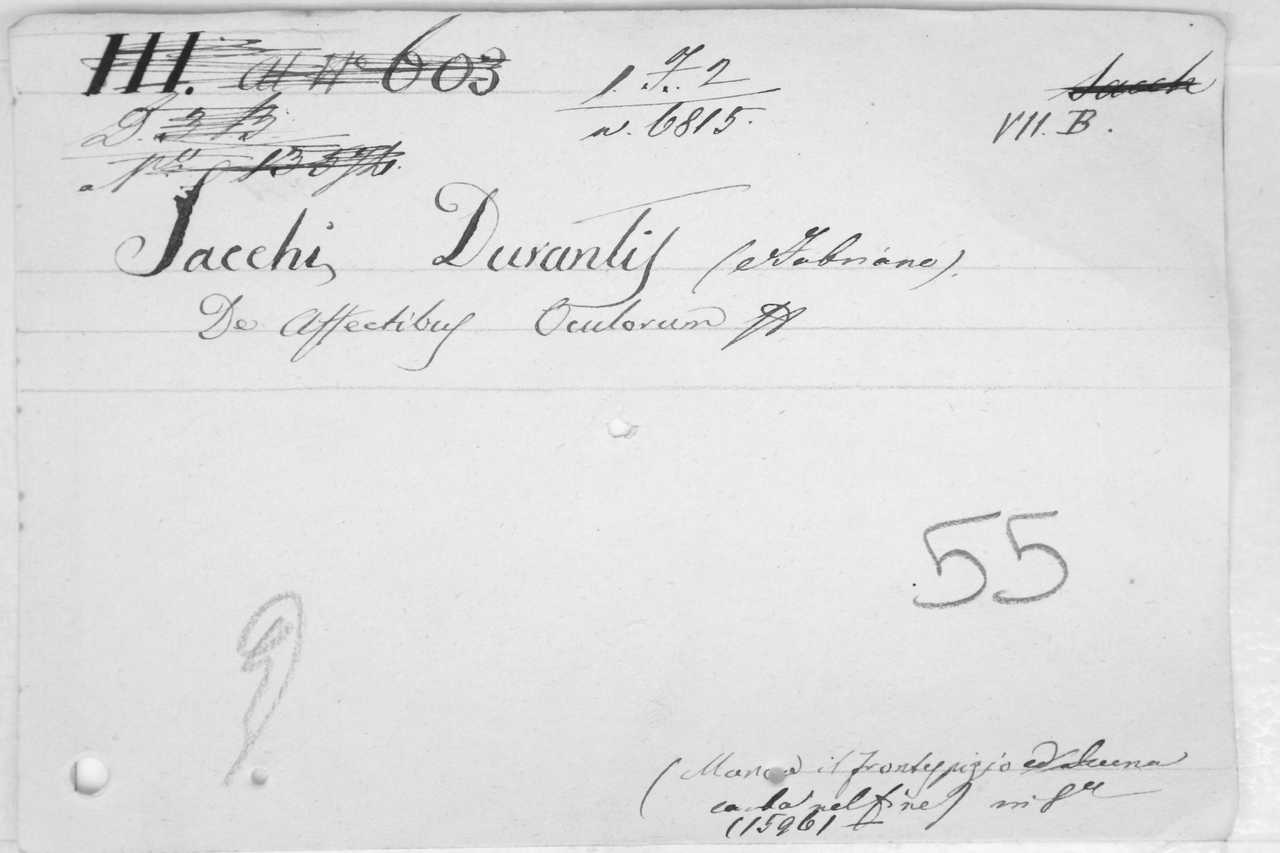 III. 603
1. F. 2
n. 6815.
Sacch
VII. B.
D. 3 B
N.º
Sacchi, Durantis (Fabriano).
De Affectibus Oculorum
55
9
(Manca il frontespizio
carta nel fine) in 8º
(1596)